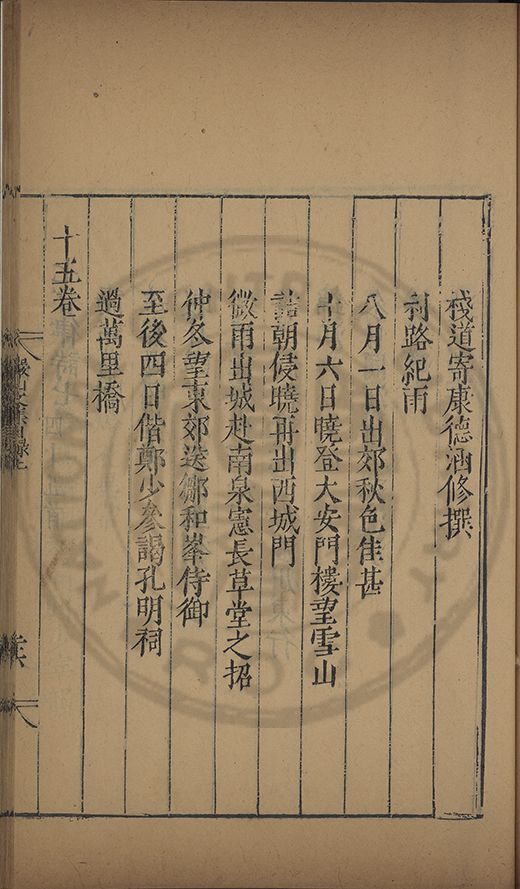 棧道寄康德涵修撰
利路紀雨
八月一日出郊秋色佳甚
十月六日曉登大安門樓望雪山
詰朝侵曉再出西城門
微雨出城赴南泉憲長草堂之招
仲冬望東郊送鄒和峯侍御
至後四日偕鄭少參謁孔明祠
過萬里橋
十五卷